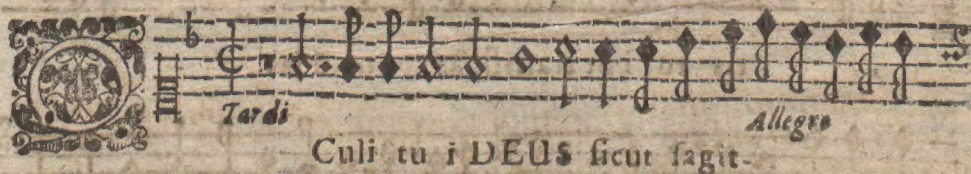 Tardi Allegro
OCuli tu i DEUS sicut sagit-